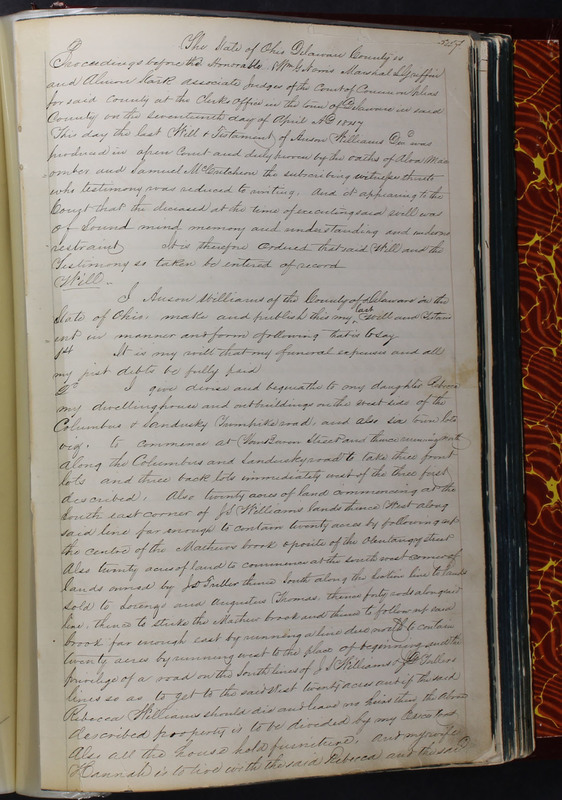 The State of Ohio Delaware County ss
Proceedings before the Honorable Wm G Norris Marshal L Griffin
and Almon Stark associate Judges of the Court of Common pleas
for said County at the Clerks Office in the town of Delaware in said
County on the seventeenth day of April AD 1847
This day the last Will & Testament of Anson Williams Decd was
produced in open Court and duly proven by the oaths of Alva Mac
omber and Samuel McCutchen the subscribing witnesses thereto
who testimony was reduced to writing. And it appearing to the
Court that the deceased at the time of executing said will was
of Sound mind memory and understanding and under no
restraint It is therefore Ordered that said Will and the
Testimony so taken be entered of record
Will
I Anson Williams of the County of Delaware in the
State of Ohio: make and publish this my last Will and Testam
ent in manner and form following that is to say
1st It is my will that my funeral expenses and all
my just debts be fully paid
2d I give devise and bequeathe to my daughter Rebecca
my dwelling house and outbuildings on the west side of the
Columbus & Sandusky Turnpike road, and also six town lots
viz, to commence at Street and thence running
along the Columbus and Sandusky road to take three front
lots and three back lots immediately west of the three first
described, Also twenty acres of land commencing at the
South east corner of J S Williams lands thence West along
said line far enough to contain twenty acres by following up
the centre of the Mathews brook opposite of the Olentangy street
Also twenty acres of land to commence at the south west corner of
lands owned by J D Fuller thence South along the section line to lands
sold to Lorenzo and Augustus Thomas, thence forty rods along said
line, thence to strike the Mathew brook and thence to follow up said
brook far enough east by running a line due north to contain
twenty acres by running west to the place of beginning and the
privilege of a road on the South lines of J S Williams & J D Fullers
lines so as to get to the said West twenty acres and if the said
Rebecca Williams should die and leave no heirs then the above
described property is to be divided by my Executors
Also all the house hold furniture, and my wife
Hannah is to live with the said Rebecca and the said